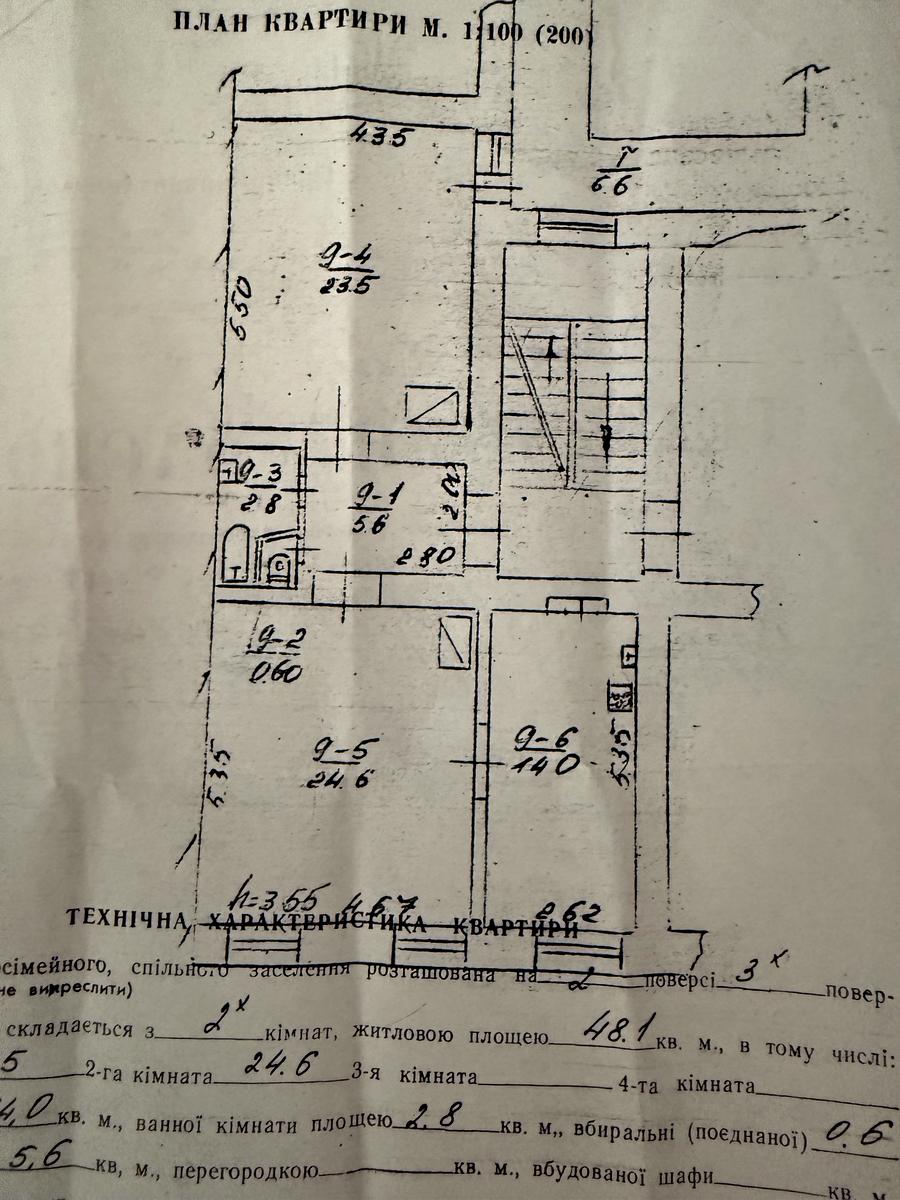 ПЛАН КВАРТИРИ М. 1:100 (200)
4.35
I
6.6
9-4
23.5
5.50
9-3
2.8
9-1
5.6
2.00
2.80
9-2
0.60
9-5
24.6
9-6
14.0
5.35
5.35
h=3.55 4.67 2.62
ТЕХНІЧНА ХАРАКТЕРИСТИКА КВАРТИРИ
осімейного, спільного заселення розташована на 2 поверсі 3х повер-
не викреслити)
складається з 2х кімнат, житловою площею 48.1 кв. м., в тому числі:
5 2-га кімната 24.6 3-я кімната 4-та кімната
4,0 кв. м., ванної кімнати площею 2.8 кв. м., вбиральні (поєднаної) 0.6
5,6 кв, м., перегородкою кв. м., вбудованої шафи
кв. м